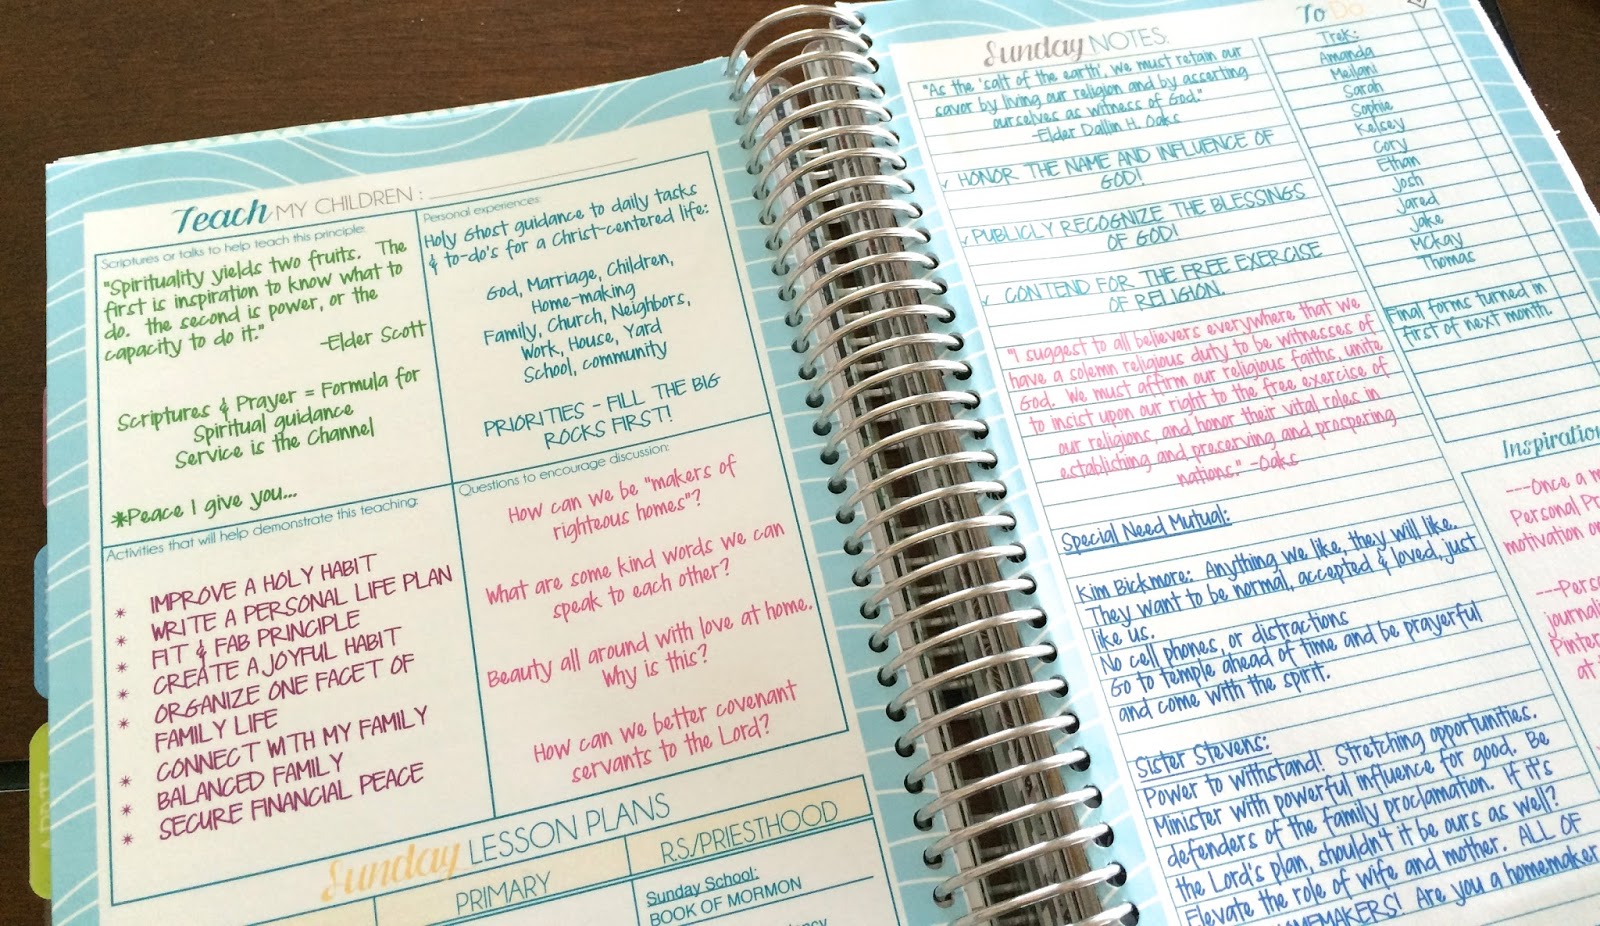 Teach MY CHILDREN :
Scriptures or talks to help teach this principle:
"Spirituality yields two fruits. The
first is inspiration to know what to
do. the second is power, or the
capacity to do it."
-Elder Scott
Scriptures & Prayer = Formula for
Spiritual guidance
Service is the Channel
*Peace I give you...
Personal experiences:
Holy Ghost guidance to daily tasks
& to-do's for a Christ-centered life:
God, Marriage, Children,
Home-making
Family, Church, Neighbors,
Work, House, Yard
School, community
PRIORITIES - FILL THE BIG
ROCKS FIRST!
Activities that will help demonstrate this teaching:
* IMPROVE A HOLY HABIT
* WRITE A PERSONAL LIFE PLAN
* FIT & FAB PRINCIPLE
* CREATE A JOYFUL HABIT
* ORGANIZE ONE FACET OF
FAMILY LIFE
* CONNECT WITH MY FAMILY
* BALANCED FAMILY
* SECURE FINANCIAL PEACE
Questions to encourage discussion:
How can we be "makers of
righteous homes"?
What are some kind words we can
speak to each other?
Beauty all around with love at home.
Why is this?
How can we better covenant
servants to the Lord?
Sunday LESSON PLANS
PRIMARY
RS/PRIESTHOOD
Sunday School:
BOOK OF MORMON
Sunday NOTES:
"As the 'salt of the earth', we must retain our
savor by living our religion and by asserting
ourselves as witness of God."
-Elder Dallin H. Oaks
✓ HONOR THE NAME AND INFLUENCE OF
GOD!
✓ PUBLICLY RECOGNIZE THE BLESSINGS
OF GOD!
✓ CONTEND FOR THE FREE EXERCISE
OF RELIGION.
"I suggest to all believers everywhere that we
have a solemn religious duty to be witnesses of
God. We must affirm our religious faiths, unite
to insist upon our right to the free exercise of
our religions, and honor their vital roles in
establishing and preserving and prospering
nations." -Oaks
Special Need Mutual:
Kim Bickmore: Anything we like, they will like.
They want to be normal, accepted & loved, just
like us.
No cell phones, or distractions
Go to temple ahead of time and be prayerful
and come with the spirit.
Sister Stevens:
Power to withstand! Stretching opportunities.
Minister with powerful influence for good. Be
defenders of the family proclamation. If it's
the Lord's plan, shouldn't it be ours as well?
Elevate the role of wife and mother. ALL OF
HOMEMAKERS! Are you a homemaker
To Do
Trek:
Amanda
Mellani
Sarah
Sophie
Kelsey
Cory
Ethan
Josh
Jared
Jake
McKay
Thomas
Final forms turned in
first of next month.
Inspiration
---Once a
Personal
motivation